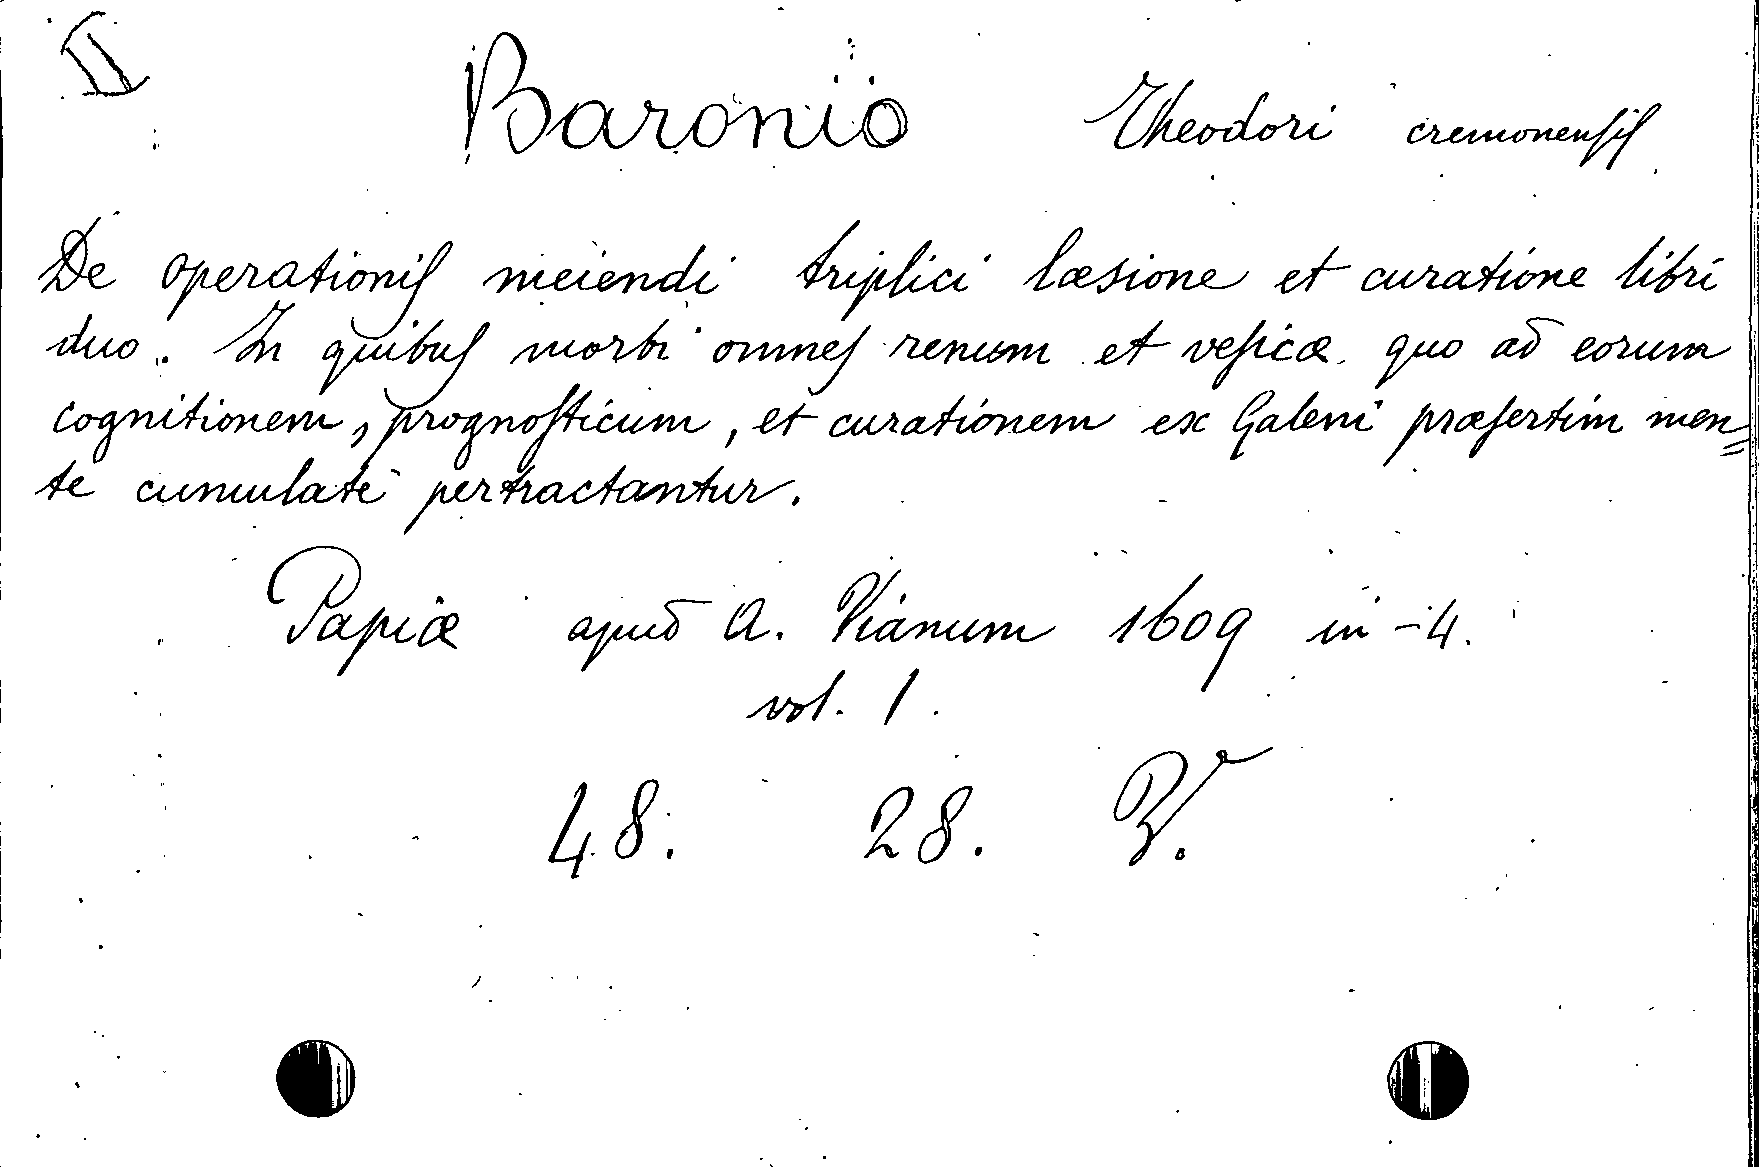 II
Baronio Theodori cremonensis
De operationis meiendi triplici læsione et curatione libri
duo. In quibus morbi omnes renum et vesicæ quo ad eorum
cognitionem, prognosticum, et curationem ex Galeni præsertim men=
te cumulatè pertractantur.
Papiæ apud A. Vianum 1609 in-4.
vol. 1.
48. 28. Z.